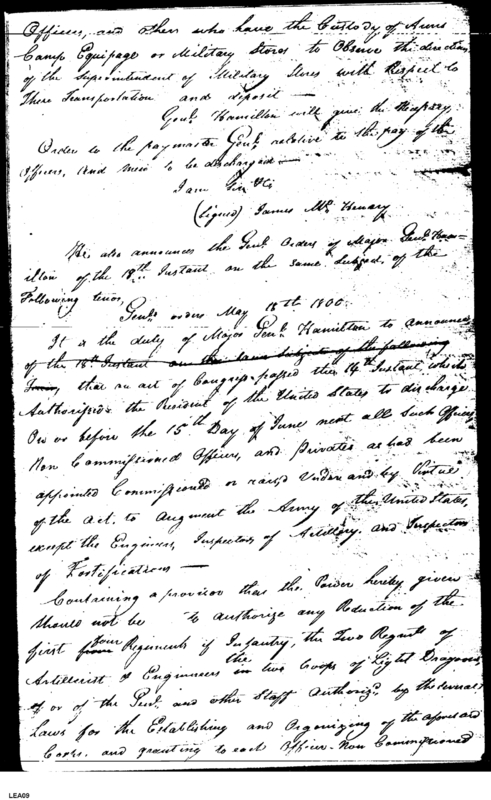 Officers, and others who have the Custody of Arms
Camp Equipage or Military Stores to Observe the direction
of the Superintendent of Military Stores with Respect to
There Transportation and deposit —
Genl. Hamilton will give the Necessary
Order to the paymaster Genl. relative to the pay of the
Officers, and Men to be discharged —
I am Sir &c
(signed) James Mc Henary
He also announces the Genl. Orders of Major Genl. Ham-
ilton of the 18th Instant on the same Subject, of the
Following tenor,
Genl. orders May 18th 1800
It is the duty of Major Genl. Hamilton to announce
of the 18th Instant on the same Subject of the following
Tenor, that an act of Congress passed the 14th Instant, which
Authorises the President of the United States to discharge
On or before the 15th Day of June next all Such Officers
Non Commissioned Officers, and privates as had been
appointed Commissiond or raisd Under and by Virtue
of the act, to augment the Army of the United States,
except the Engineers, Inspectors of Artillery, and Inspectors
of Fortifications —
Containing a provison that the Power hereby given
Should not be to authorize any Reduction of the
first from four Regiments of Infantry, the Two Regmts of
Artillerist & Engineers the in two Coops of Light Dragoons
of or of the Genl. and other Staff Authorizd by the several
Laws for the Establishing and Organizing of the aforesaid
Corps, and granting to each Officer Non Commissioned
LEA09